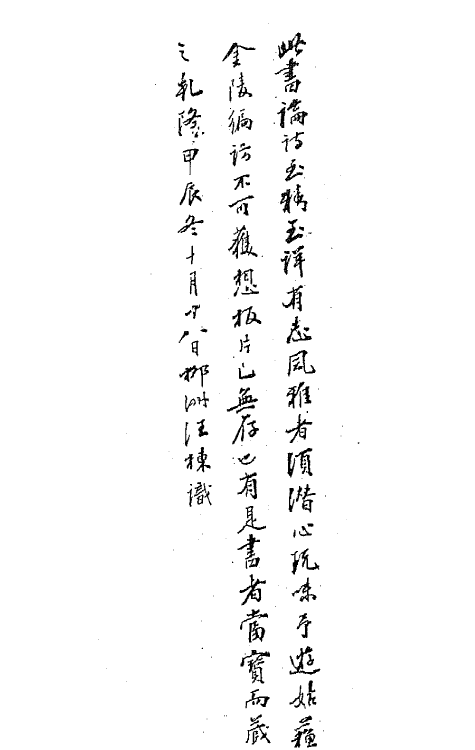 此書論詩至精至詳有志風雅者須潛心玩味予遊姑蘇
金陵徧訪不可獲想板片已無存也有是書者當寶而藏
之乾隆甲辰冬十月十八日柳洲汪棟識